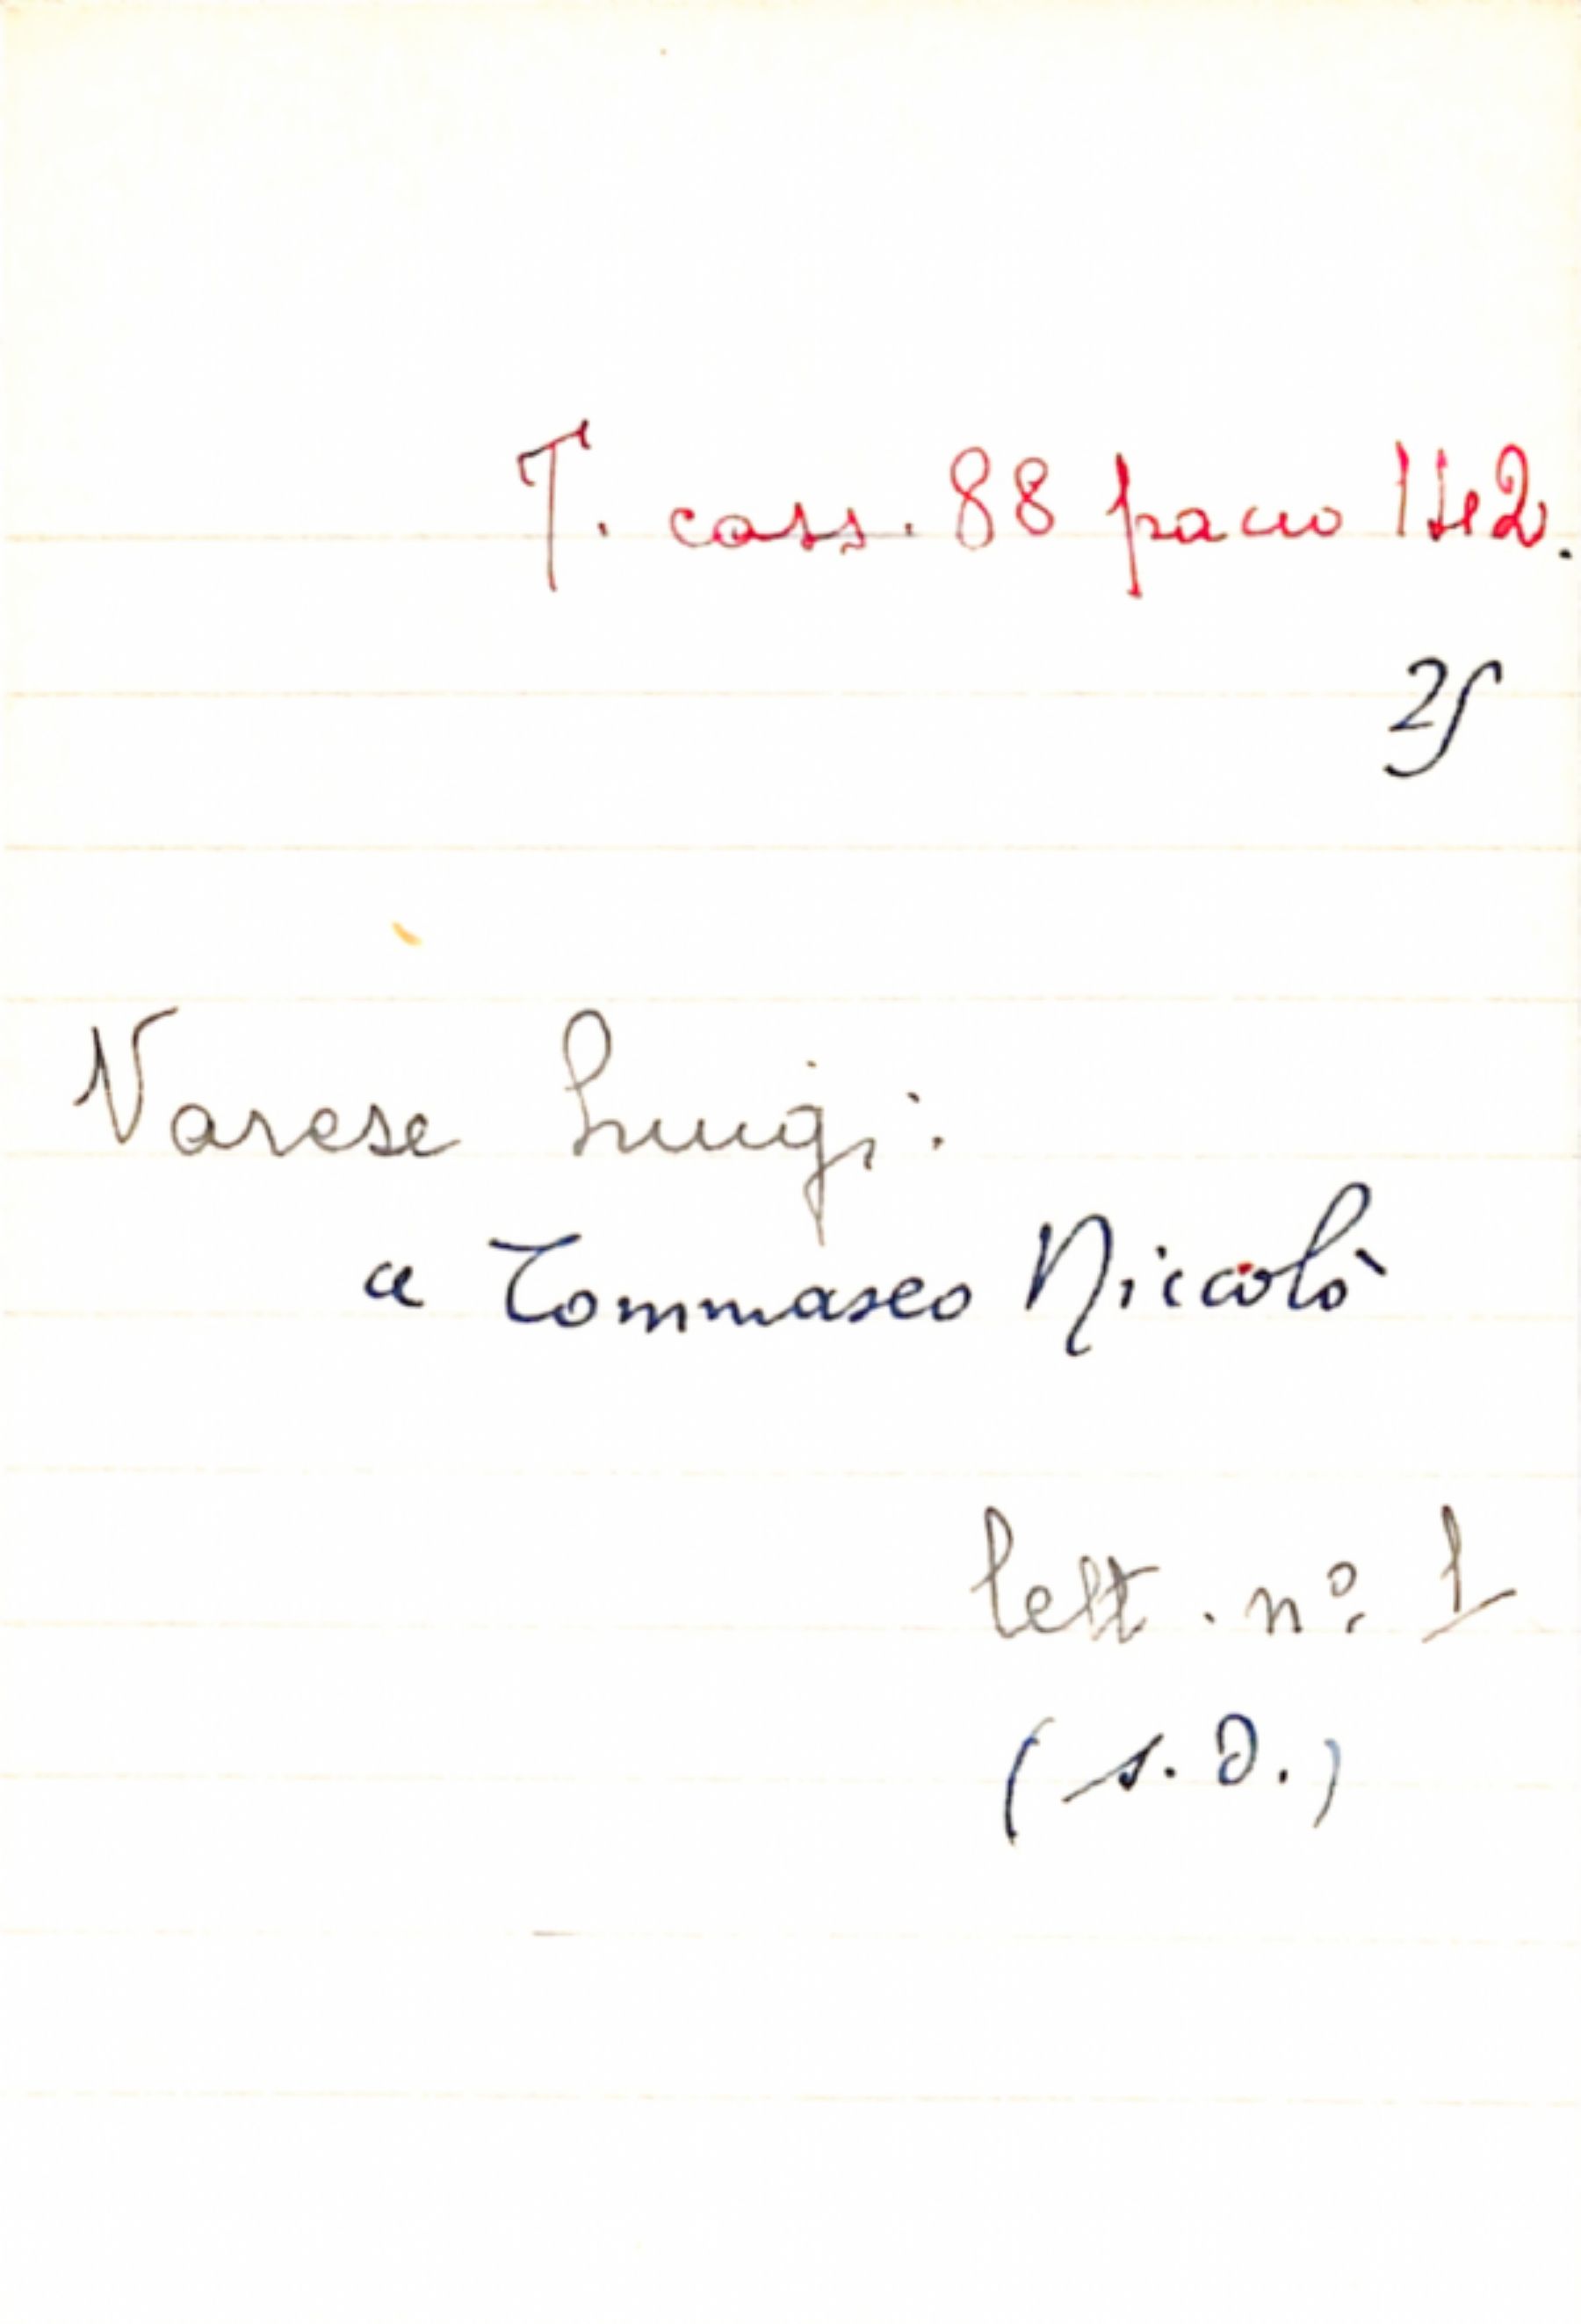 T. cass. 88 pacco 142.
25
Varese Luigi:
a Tommaseo Niccolò
lett. nº 1
(s.d.)